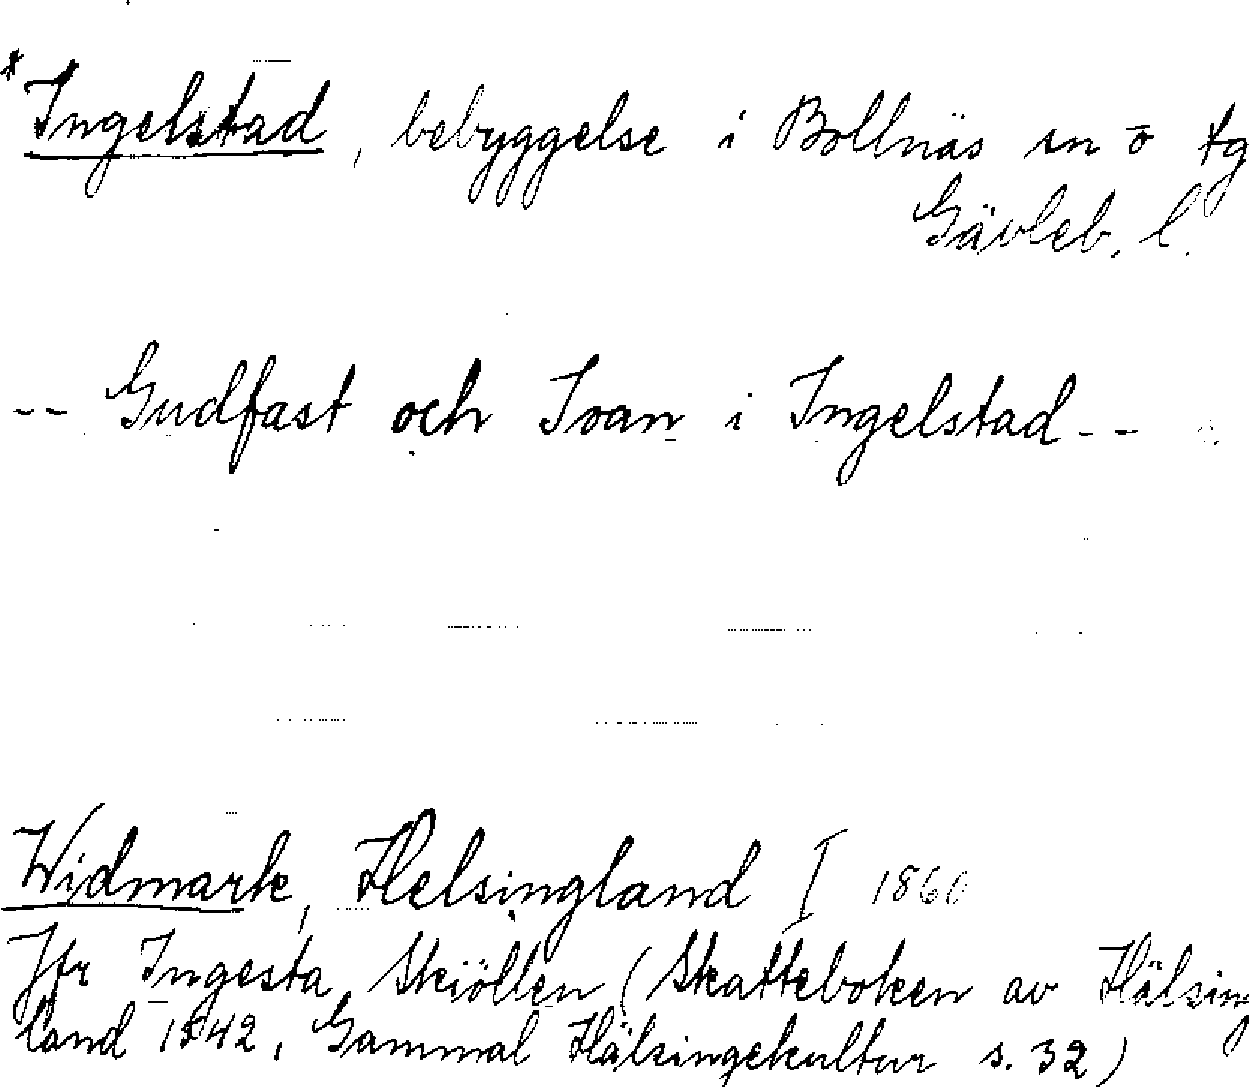 *Ingelstad, bebyggelse i Bollnäs sn o tg
Gävleb. l.
-- Gudfast och Ivan i Ingelstad --
Widmark, Helsingland I 1860
Jfr Ingesta, Skiöllen (Skatteboken av Hälsing
land 1542, Gammal Hälsingekultur s. 32)